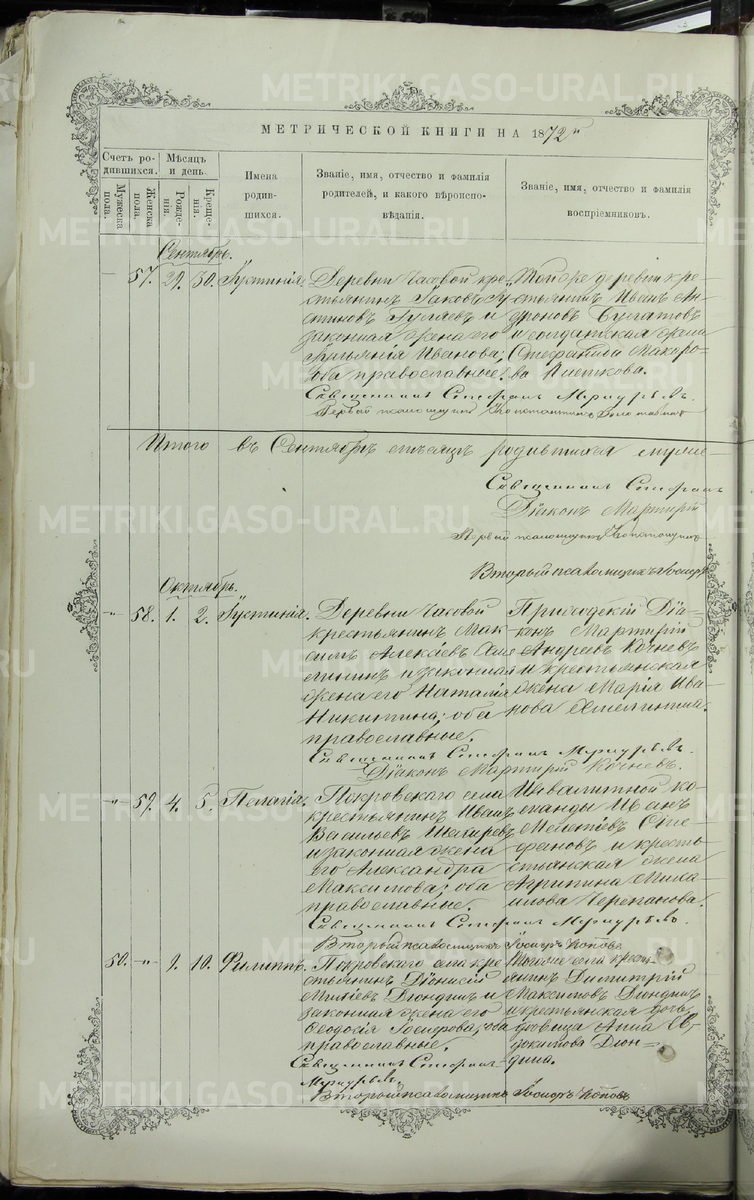 МЕТРИЧЕСКОЙ КНИГИ НА 1872й
Счетъ ро-
дившихся.
Мѣсяцъ
и день.
Мужеска
пола.
Женска
пола.
Рожде-
нія.
Креще-
нія.
Имена
родив-
шихся.
Званіе, имя, отчество и фамилія
родителей, и какого вѣроиспо-
вѣданія.
Званіе, имя, отчество и фамилія
воспріемниковъ.
Сентябрь.
57. 29. 30. Іустинія.
Деревни Часовой кре-
стьянинъ Іаковъ
и
законная жена его
Иванова;
оба православные.
Тойже деревни кре-
стьянинъ Иванъ Ан-
дроновъ
и солдатская жена
Стефанида Макаро-
ва
Священникъ Стефанъ
Первый псаломщикъ Константинъ
Итого въ Сентябрѣ мѣсяцѣ родившихся муже-
Священникъ Стефанъ
Діаконъ Мартирій
Первый псаломщикъ Константинъ
Вторый псаломщикъ Іосифъ
Октябрь.
" 58. 1. 2. Іустинія.
Деревни Часовой
крестьянинъ Мак-
симъ Алексѣевъ Хме-
лининъ и законная
жена его Наталія
Никитина; оба
православные.
Приходскій Діа-
конъ Мартирій
Андреевъ Кочневъ
и крестьянская
жена Марія Ива-
нова Хмелинина.
Священникъ Стефанъ
Діаконъ Мартирій Кочневъ.
" 59. 4. 5. Пелагія.
Покровскаго села
крестьянинъ Иванъ
Васильевъ
и законная жена
его Александра
Максимова; оба
православные.
ко-
манды Иванъ
Мелентіевъ Сте-
фановъ и кресть-
янская жена
Агрипина Миха-
илова Черепанова.
Священникъ Стефанъ
Вторый псаломщикъ Іосифъ Поповъ
50. " 9. 10. Филиппъ.
Покровскаго села кре-
стьянинъ Діонисій
Дюндинъ и
законная жена его
Ѳеодосія Іосифова; оба
православные.
Тогоже села крестья-
нинъ Димитрій
Максимовъ Дюндинъ
и крестьянская дочь
дѣвица Анна Ев-
докимова Дюн-
дина.
Священникъ Стефанъ
Вторый псаломщикъ Іосифъ Поповъ
METRIKI.GASO-URAL.RU